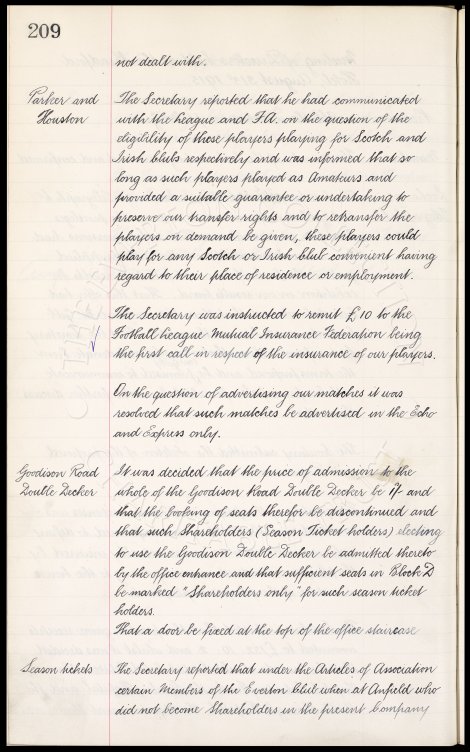 209
not dealt with.
Parker and
Houston
The Secretary reported that he had communicated
with the League and F.A. on the question of the
eligibility of these players playing for Scotch and
Irish Clubs respectively and was informed that so
long as such players played as Amateurs and
provided a suitable guarantee or undertaking to
preserve our transfer rights and to retransfer the
players on demand be given, these players could
play for any Scotch or Irish Club convenient having
regard to their place of residence or employment.
The Secretary was instructed to remit £10 to the
Football League Mutual Insurance Federation being
the first call in respect of the insurance of our players.
On the question of advertising our matches it was
resolved that such matches be advertised in the Echo
and Express only.
Goodison Road
Double Decker
It was decided that the price of admission to the
whole of the Goodison Road Double Decker be 1/- and
that the booking of seats therefor be discontinued and
that such Shareholders (Season Ticket holders) electing
to use the Goodison Double Decker be admitted thereto
by the office entrance and that sufficient seats in Block D
be marked "Shareholders only" for such season ticket
holders.
That a door be fixed at the top of the office staircase
Season tickets
The Secretary reported that under the Articles of Association
certain Members of the Everton Club when at Anfield who
did not become Shareholders in the present Company